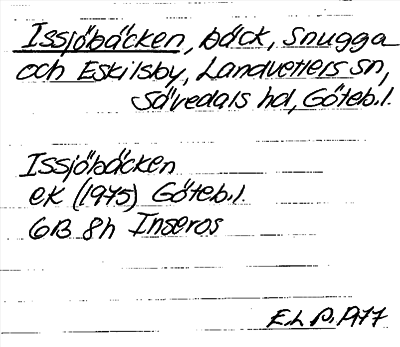 Issjöbäcken, bäck, Snugga
och Eskilsby, Landvetters sn,
Sävedals hd, Göteb.l.
Issjöbäcken
ek (1975) Göteb.l.
6B 8h Inseros